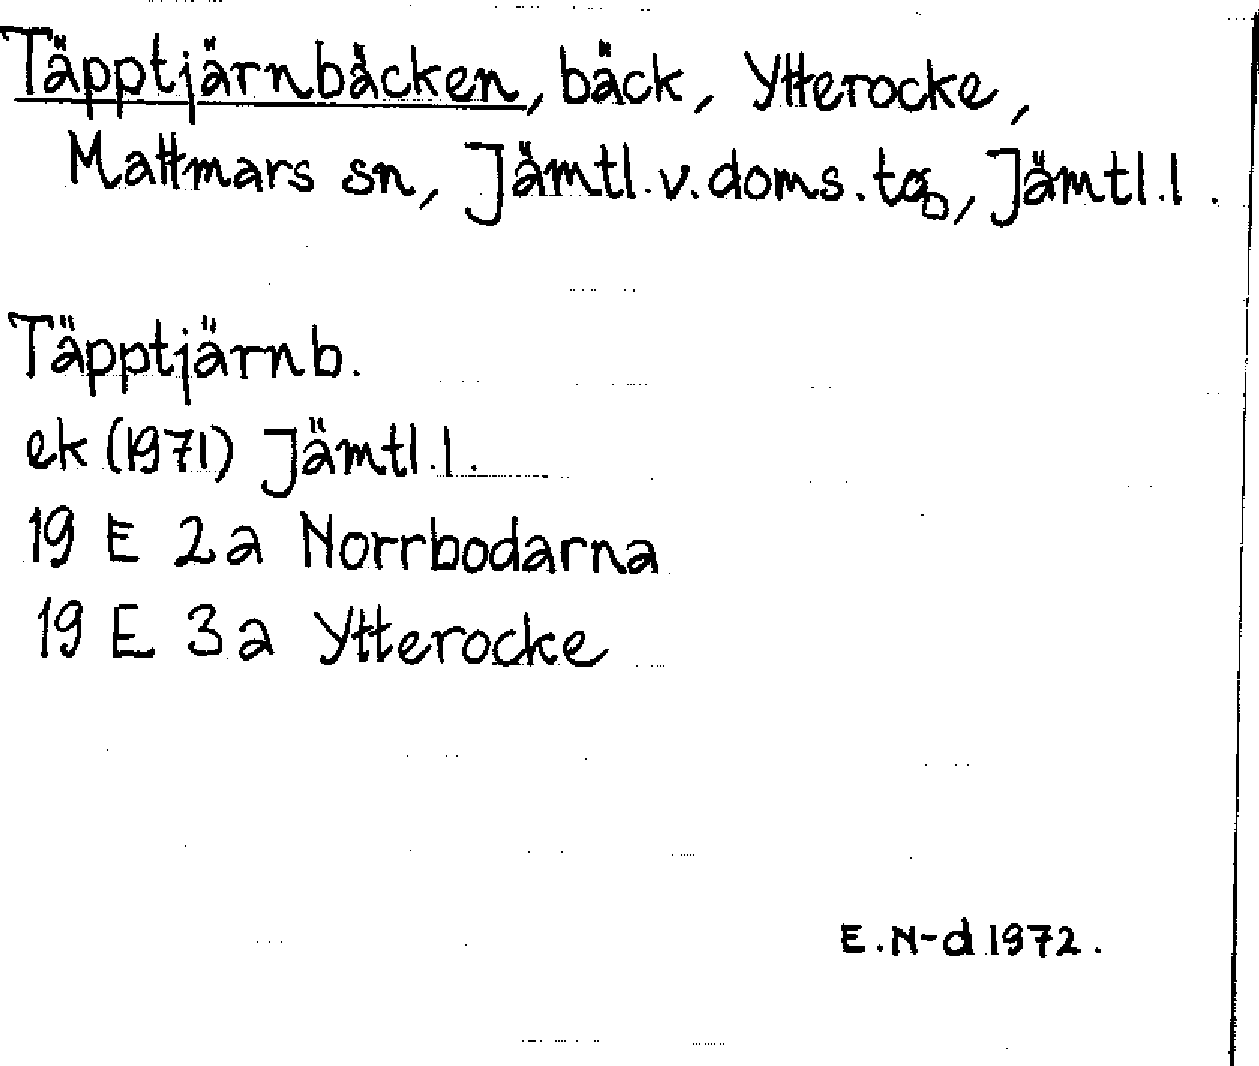 Täpptjärnbäcken, bäck, Ytterocke,
Mattmars sn, Jämtl.v.doms.tg, Jämtl.l.
Täpptjärnb.
ek (1971) Jämtl.l.
19 E 2a Norrbodarna
19 E 3a Ytterocke
E.N-d 1972.